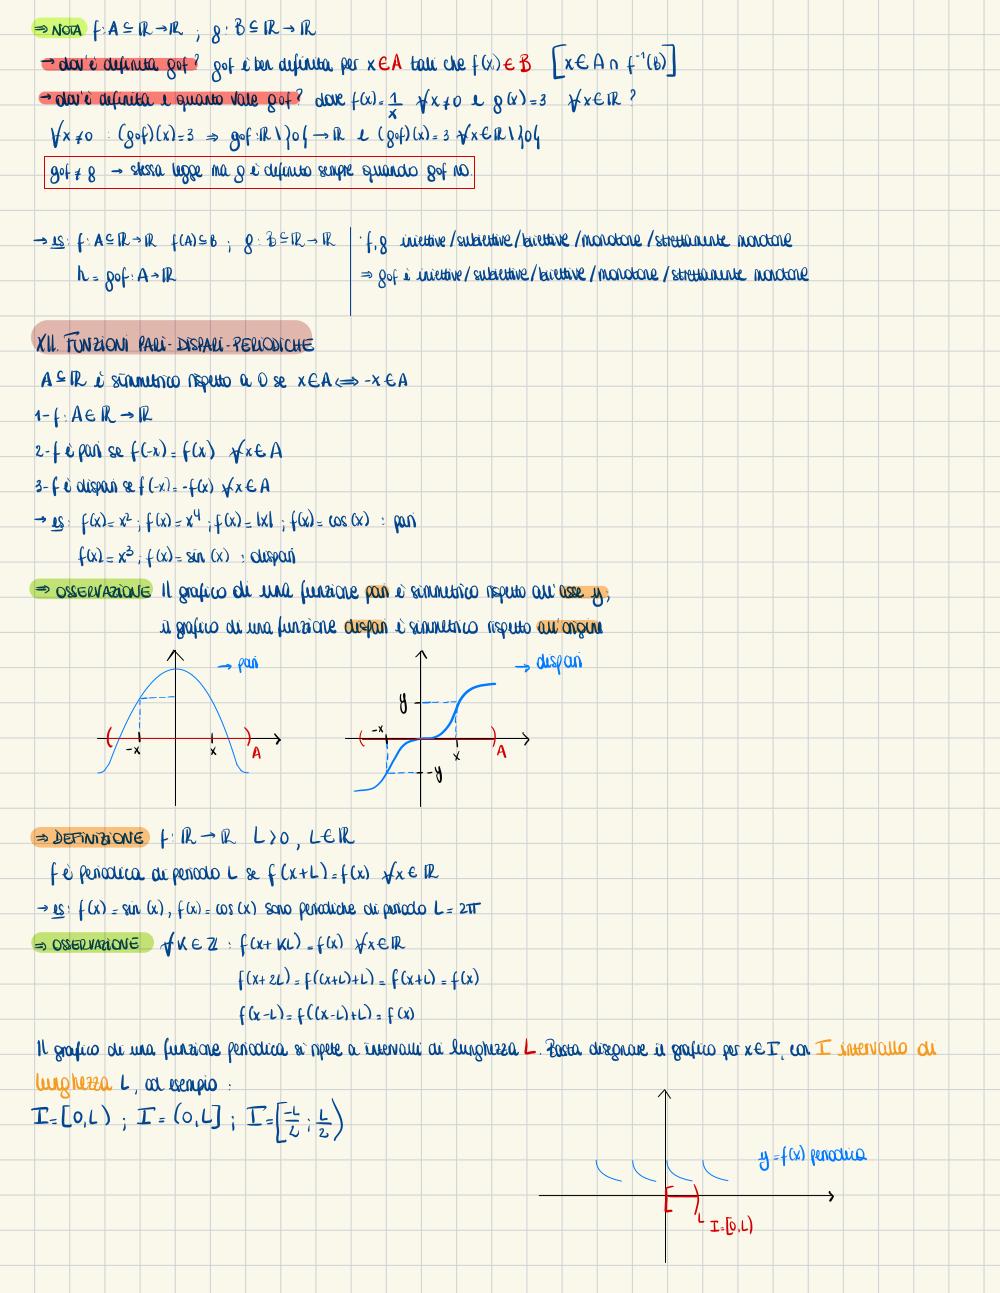 ⇒ NOTA f: A ⊆ ℝ → ℝ ; g: B ⊆ ℝ → ℝ
→ dov'è definita gof? gof è ben definita per x ∈ A tali che f(x) ∈ B [x ∈ A ∩ f⁻¹(B)]
→ dov'è definita e quanto vale gof? dove f(x) = 1/x ∀x ≠ 0 e g(x) = 3 ∀x ∈ ℝ ?
∀x ≠ 0 : (gof)(x) = 3 ⇒ gof: ℝ \ }0{ → ℝ e (gof)(x) = 3 ∀x ∈ ℝ \ }0{
gof ≠ g → stessa legge ma g è definito sempre quando gof no.
→ es: f: A ⊆ ℝ → ℝ f(A) ⊆ B ; g: B ⊆ ℝ → ℝ
h = gof: A → ℝ
· f, g iniettive/suriettive/biettive/monotone/strettamente monotone
⇒ gof è iniettive/suriettive/biettive/monotone/strettamente monotone
XII. FUNZIONI PARI - DISPARI - PERIODICHE
A ⊆ ℝ è simmetrico rispetto a 0 se x ∈ A ⟺ -x ∈ A
1 - f: A ∈ ℝ → ℝ
2 - f è pari se f(-x) = f(x) ∀x ∈ A
3 - f è dispari se f(-x) = -f(x) ∀x ∈ A
→ es: f(x) = x² ; f(x) = x⁴ ; f(x) = |x| ; f(x) = cos(x) : pari
f(x) = x³ ; f(x) = sin(x) : dispari
⇒ OSSERVAZIONE Il grafico di una funzione pari è simmetrico rispetto all'asse y;
il grafico di una funzione dispari è simmetrico rispetto all'origine
→ pari
-x x A
→ dispari
y
-x x A
-y
⇒ DEFINIZIONE f: ℝ → ℝ L > 0, L ∈ ℝ
f è periodica di periodo L se f(x+L) = f(x) ∀x ∈ ℝ
→ es: f(x) = sin(x), f(x) = cos(x) sono periodiche di periodo L = 2π
⇒ OSSERVAZIONE ∀K ∈ ℤ : f(x+KL) = f(x) ∀x ∈ ℝ
f(x+2L) = f((x+L)+L) = f(x+L) = f(x)
f(x-L) = f((x-L)+L) = f(x)
Il grafico di una funzione periodica si ripete a intervalli di lunghezza L. Basta disegnare il grafico per x ∈ I, con I intervallo di
lunghezza L, ad esempio :
I = [0,L) ; I = (0,L] ; I = [-L/2 ; L/2)
y = f(x) periodica
L I = [0,L)